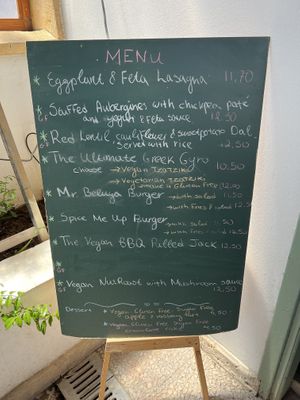 MENU
* Eggplant & Feta Lasagna 11,70
* Stuffed Aubergines with chickpea paté
GF and yogurt & Feta sauce 12.50
* Red Lentil cauliflower & sweetpotato Dal
GF Served with rice 12,50
* The Ultimate Greek Gyro 10.50
choose → Vegan Tzatziki
→ Vegetarian Tzatziki
→ make it Gluten Free 12,00
* Mr Beluga Burger → with Salad 11.50
→ with Fries
* Spice Me Up Burger → with salad
→ with Fries
* The Vegan BBQ Pulled Jack 12.50
*
GF
* Vegan NutRawl with Mushroom sauce
GF 12,50
Dessert * Vegan Gluten Free Sugar Free
apple 4,50
* Vegan Gluten Free Sugar Free
4.50